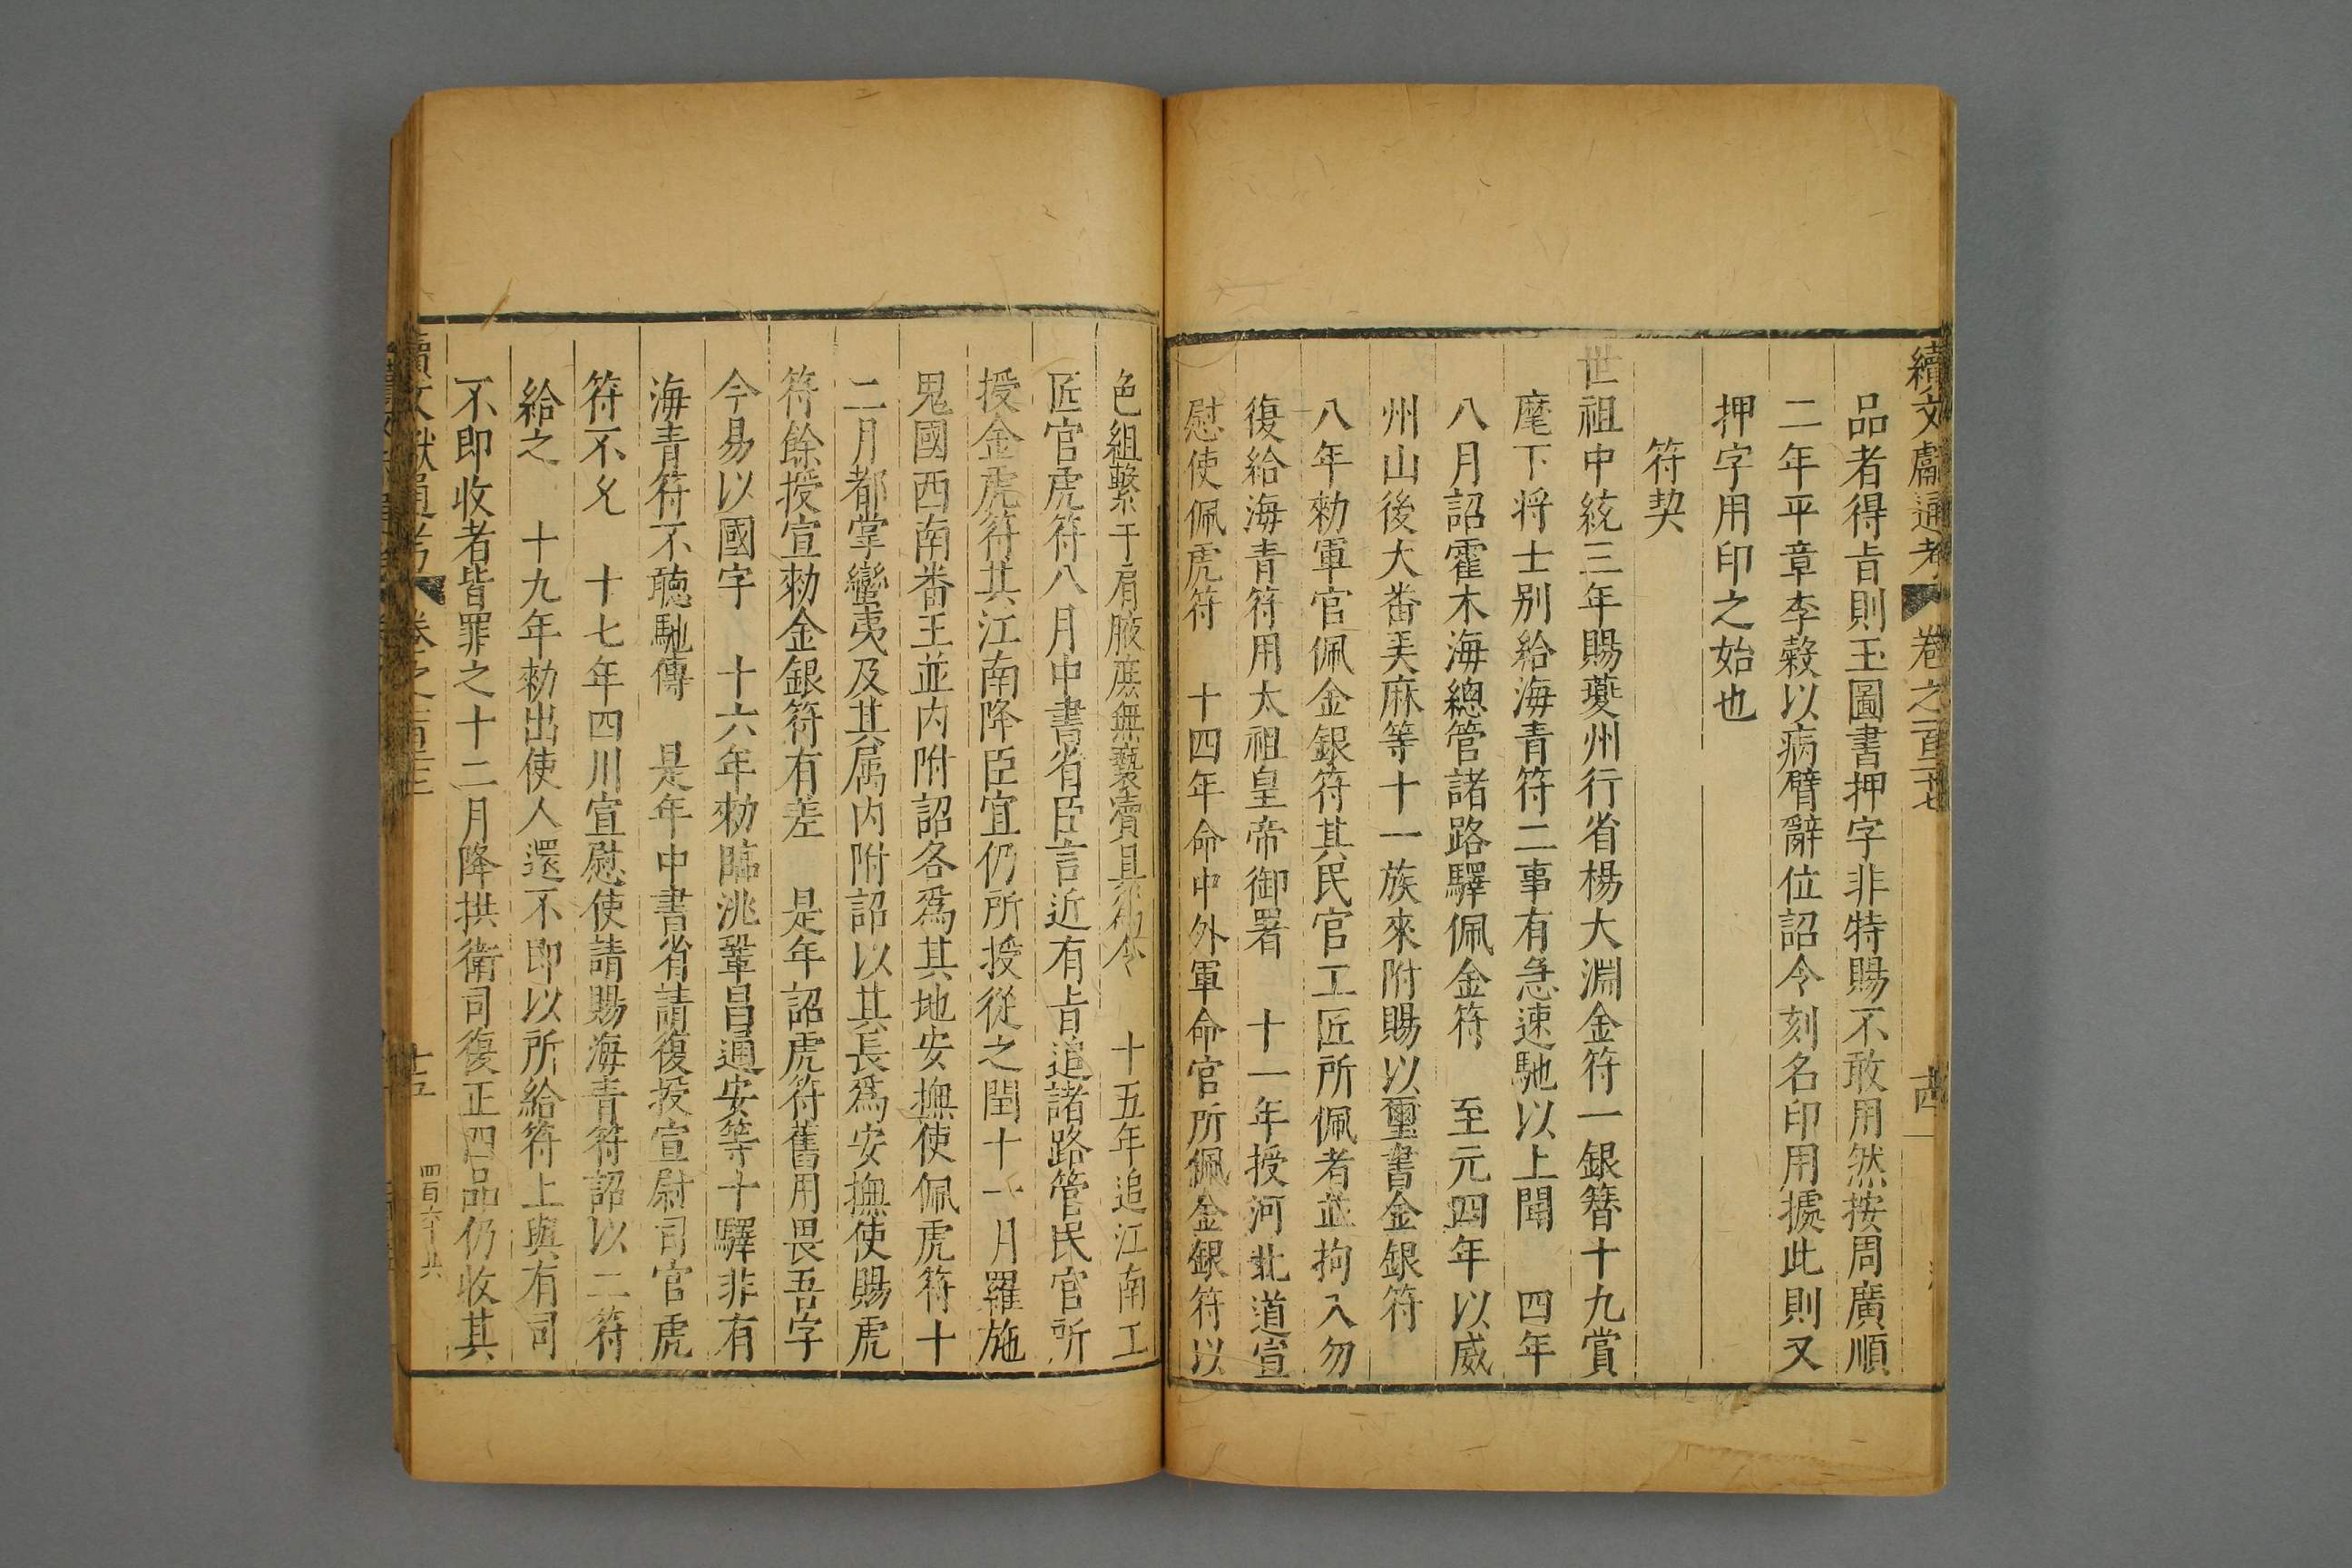 續文獻通考 卷之百二十七 十四
品者得旨則玉圖書押字非特賜不敢用然按周廣順
二年平章李糓以病臂辭位詔令刻名印用據此則又
押字用印之始也
符契
世祖中統三年賜夔州行省楊大淵金符一銀符十九賞
麾下将士别給海青符二事有急速馳以上聞 四年
八月詔霍木海總管諸路驛佩金符 至元四年以威
州山後大畨美麻等十一族來附賜以璽書金銀符
八年勑軍官佩金銀符其民官工匠所佩者並拘入勿
復給海青符用太祖皇帝御署 十一年授河北道宣
慰使佩虎符 十四年命中外軍命官所佩金銀符以
色組繫于肩腋庶無褻瀆具爲令 十五年追江南工
匠官虎符八月中書省臣言近有旨追諸路管民官所
授金虎符其江南降臣宜仍所授從之閏十一月羅施
鬼國西南畨王並内附詔各爲其地安撫使佩虎符十
二月都掌蠻夷及其属内附詔以其長爲安撫使賜虎
符餘授宣勑金銀符有差 是年詔虎符舊用畏吾字
今易以國字 十六年勑臨洮鞏昌通安等十驛非有
海青符不聴馳傳 是年中書省請復授宣慰司官虎
符不允 十七年四川宣慰使請賜海青符詔以二符
給之 十九年勑出使人還不即以所給符上與有司
不即收者皆罪之十二月降拱衛司復正四品仍收其
續文獻通考 卷之 十五